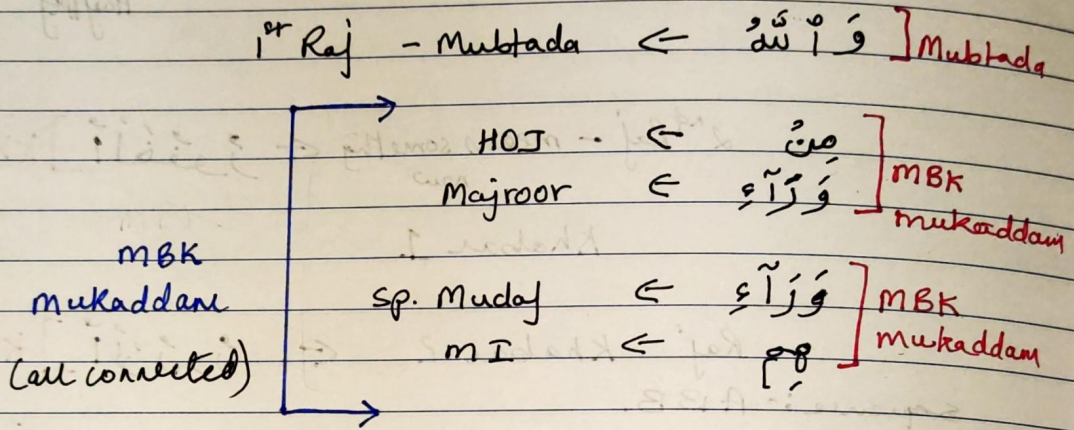 1st Raj - Mubtada ← وَ ٱللَّهُ ] Mubtada
HOJ ← مِنْ
Majroor ← وَرَآءِ ] MBK mukaddam
MBK mukaddam (all connected)
sp. Mudaf ← وَرَآءِ ] MBK mukaddam
MI ← هِم